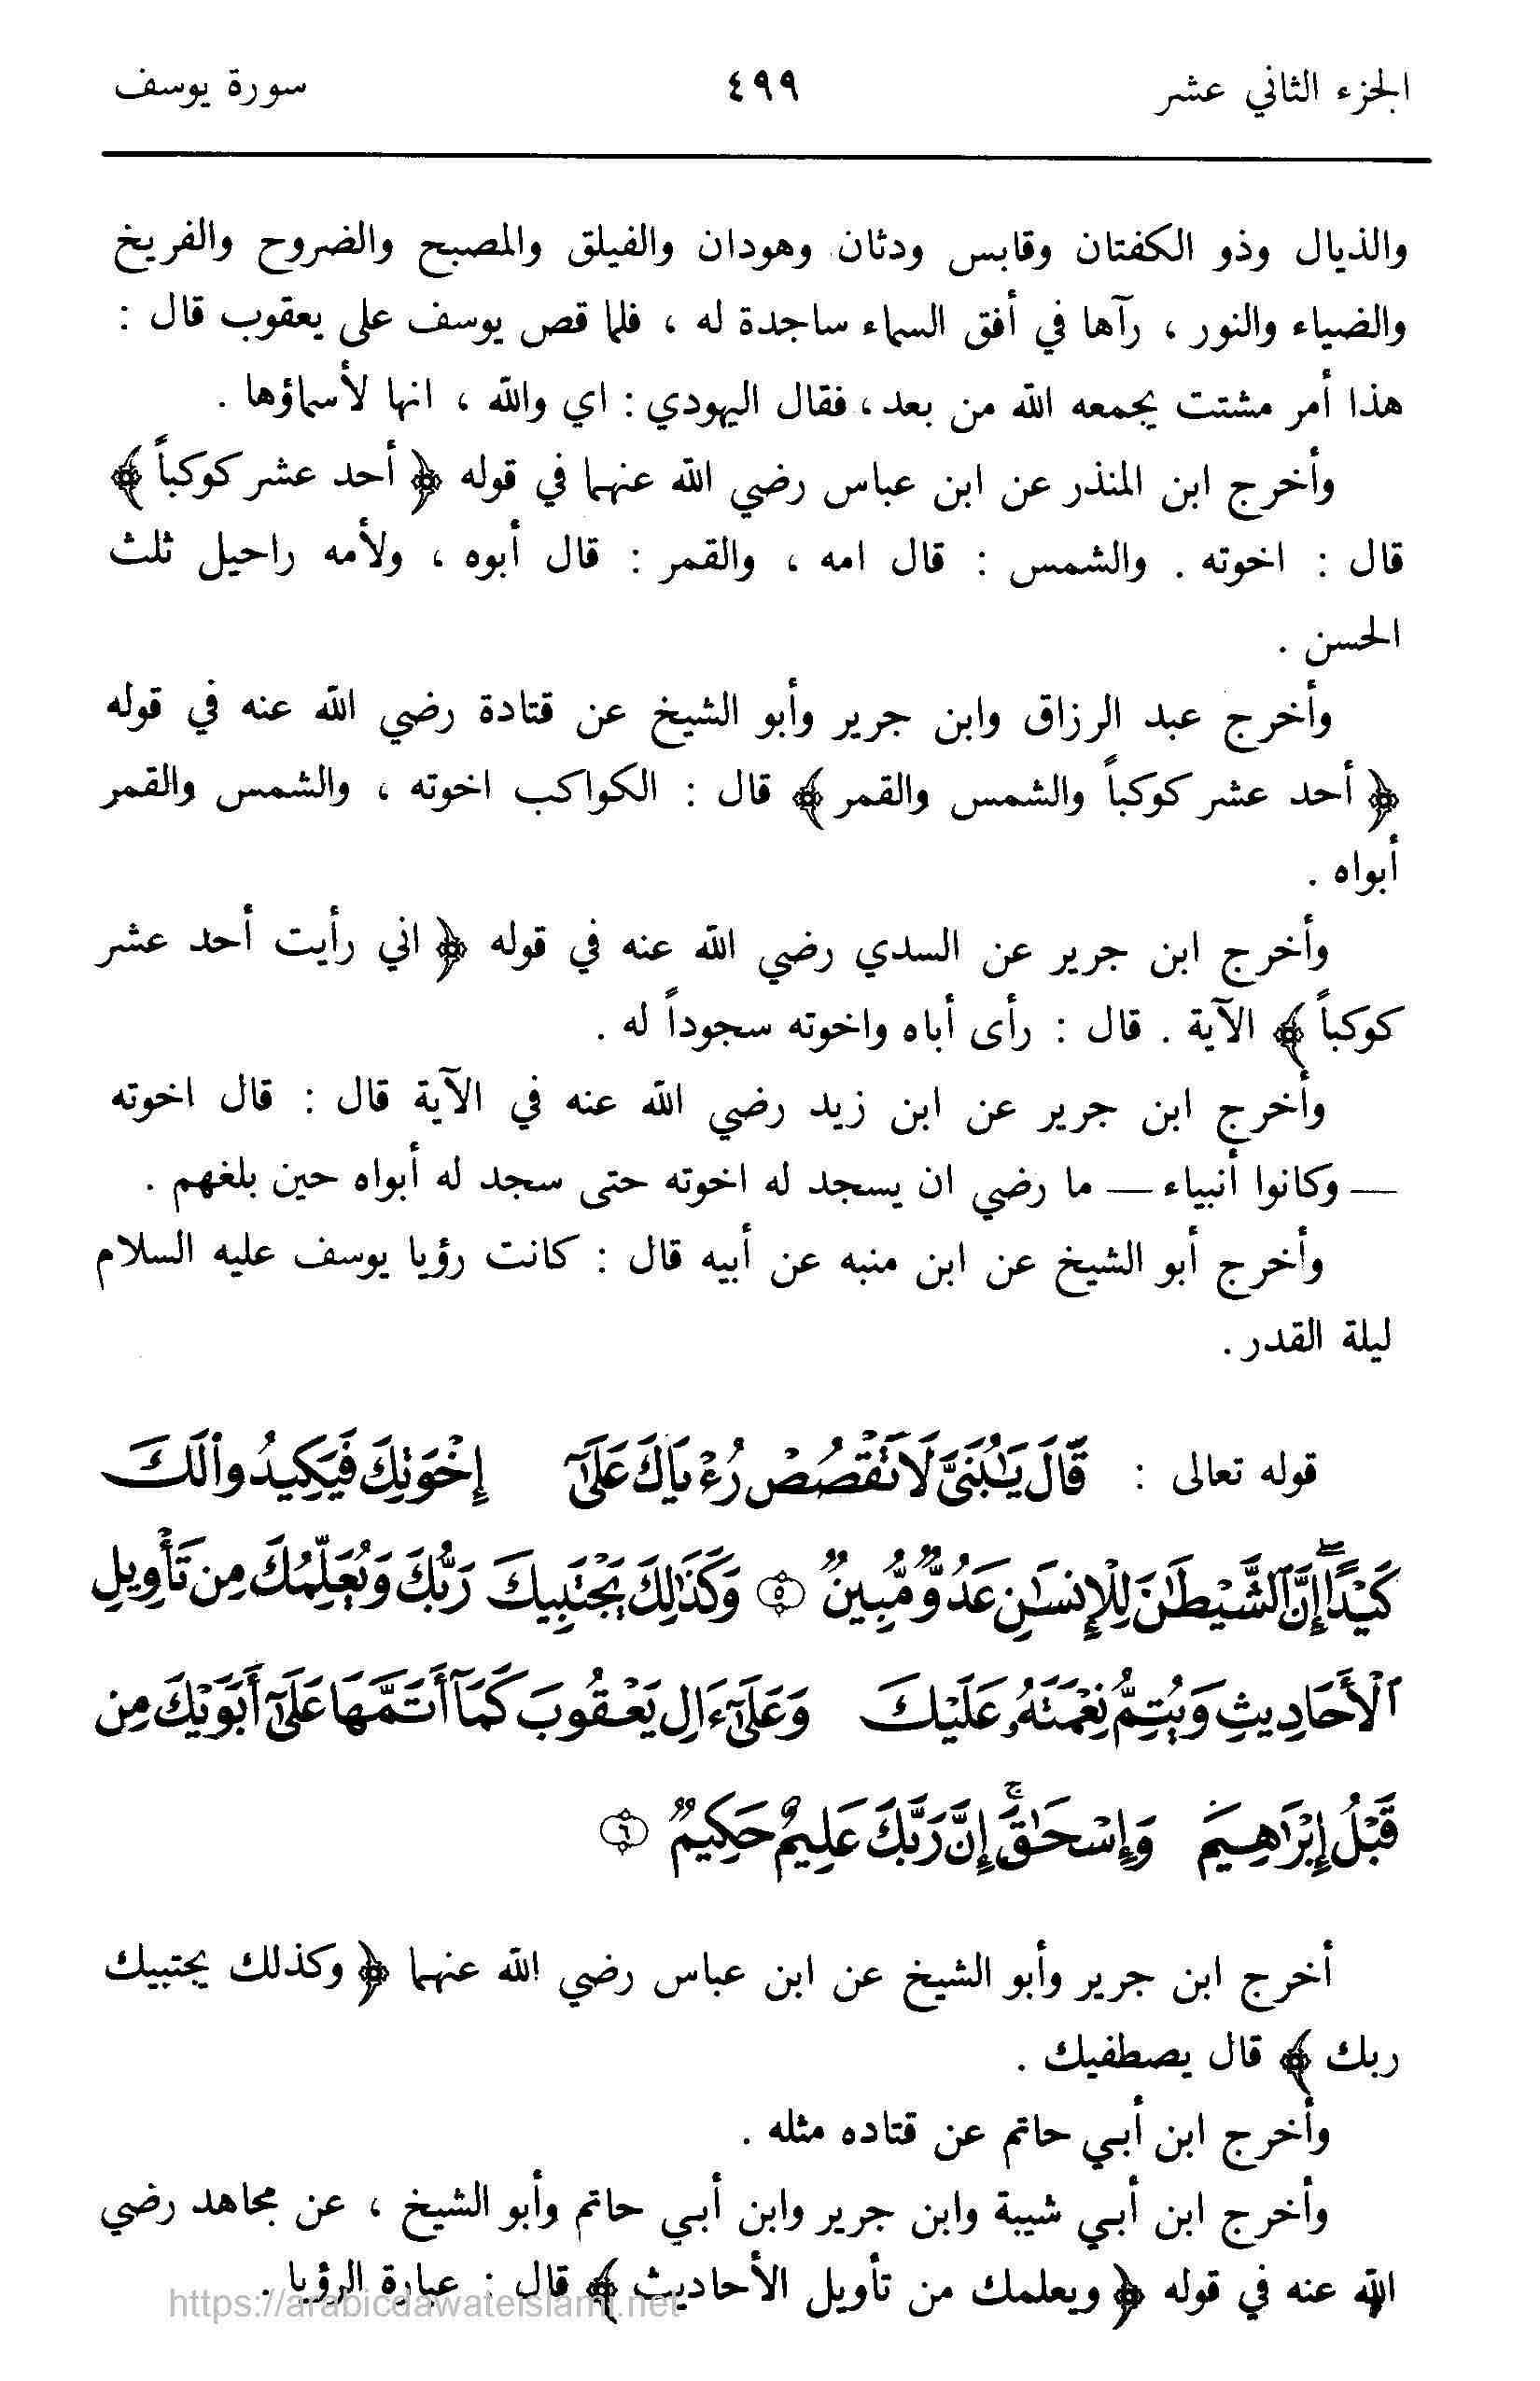 الجزء الثاني عشر ٤٩٩ سورة يوسف
والذيال وذو الكفتان وقابس ودثان وهودان والفيلق والمصبح والضروح والفريخ
والضياء والنور ، رآها في أفق السماء ساجدة له ، فلما قص يوسف على يعقوب قال :
هذا أمر مشتت يجمعه الله من بعد ، فقال اليهودي : اي والله ، انها لأسماؤها .
وأخرج ابن المنذر عن ابن عباس رضي الله عنهما في قوله ﴿ أحد عشر كوكباً ﴾
قال : اخوته . والشمس : قال امه ، والقمر : قال أبوه ، ولأمه راحيل ثلث
الحسن .
وأخرج عبد الرزاق وابن جرير وأبو الشيخ عن قتادة رضي الله عنه في قوله
﴿ أحد عشر كوكباً والشمس والقمر ﴾ قال : الكواكب اخوته ، والشمس والقمر
أبواه .
وأخرج ابن جرير عن السدي رضي الله عنه في قوله ﴿ اني رأيت أحد عشر
كوكباً ﴾ الآية . قال : رأى أباه واخوته سجوداً له .
وأخرج ابن جرير عن ابن زيد رضي الله عنه في الآية قال : قال اخوته
— وكانوا أنبياء — ما رضي ان يسجد له اخوته حتى سجد له أبواه حين بلغهم .
وأخرج أبو الشيخ عن ابن منبه عن أبيه قال : كانت رؤيا يوسف عليه السلام
ليلة القدر .
قوله تعالى : قَالَ يَٰبُنَيَّ لَا تَقْصُصْ رُءْيَاكَ عَلَىٰٓ إِخْوَتِكَ فَيَكِيدُوا۟ لَكَ
كَيْدًا ۖ إِنَّ ٱلشَّيْطَٰنَ لِلْإِنسَٰنِ عَدُوٌّ مُّبِينٌ ۝٥ وَكَذَٰلِكَ يَجْتَبِيكَ رَبُّكَ وَيُعَلِّمُكَ مِن تَأْوِيلِ
ٱلْأَحَادِيثِ وَيُتِمُّ نِعْمَتَهُۥ عَلَيْكَ وَعَلَىٰٓ ءَالِ يَعْقُوبَ كَمَآ أَتَمَّهَا عَلَىٰٓ أَبَوَيْكَ مِن
قَبْلُ إِبْرَٰهِيمَ وَإِسْحَٰقَ ۚ إِنَّ رَبَّكَ عَلِيمٌ حَكِيمٌ ۝٦
أخرج ابن جرير وأبو الشيخ عن ابن عباس رضي الله عنهما ﴿ وكذلك يجتبيك
ربك ﴾ قال يصطفيك .
وأخرج ابن أبي حاتم عن قتاده مثله .
وأخرج ابن أبي شيبة وابن جرير وابن أبي حاتم وأبو الشيخ ، عن مجاهد رضي
الله عنه في قوله ﴿ ويعلمك من تأويل الأحاديث ﴾ قال : عبارة الرؤيا .
https://arabicdawateislami.net